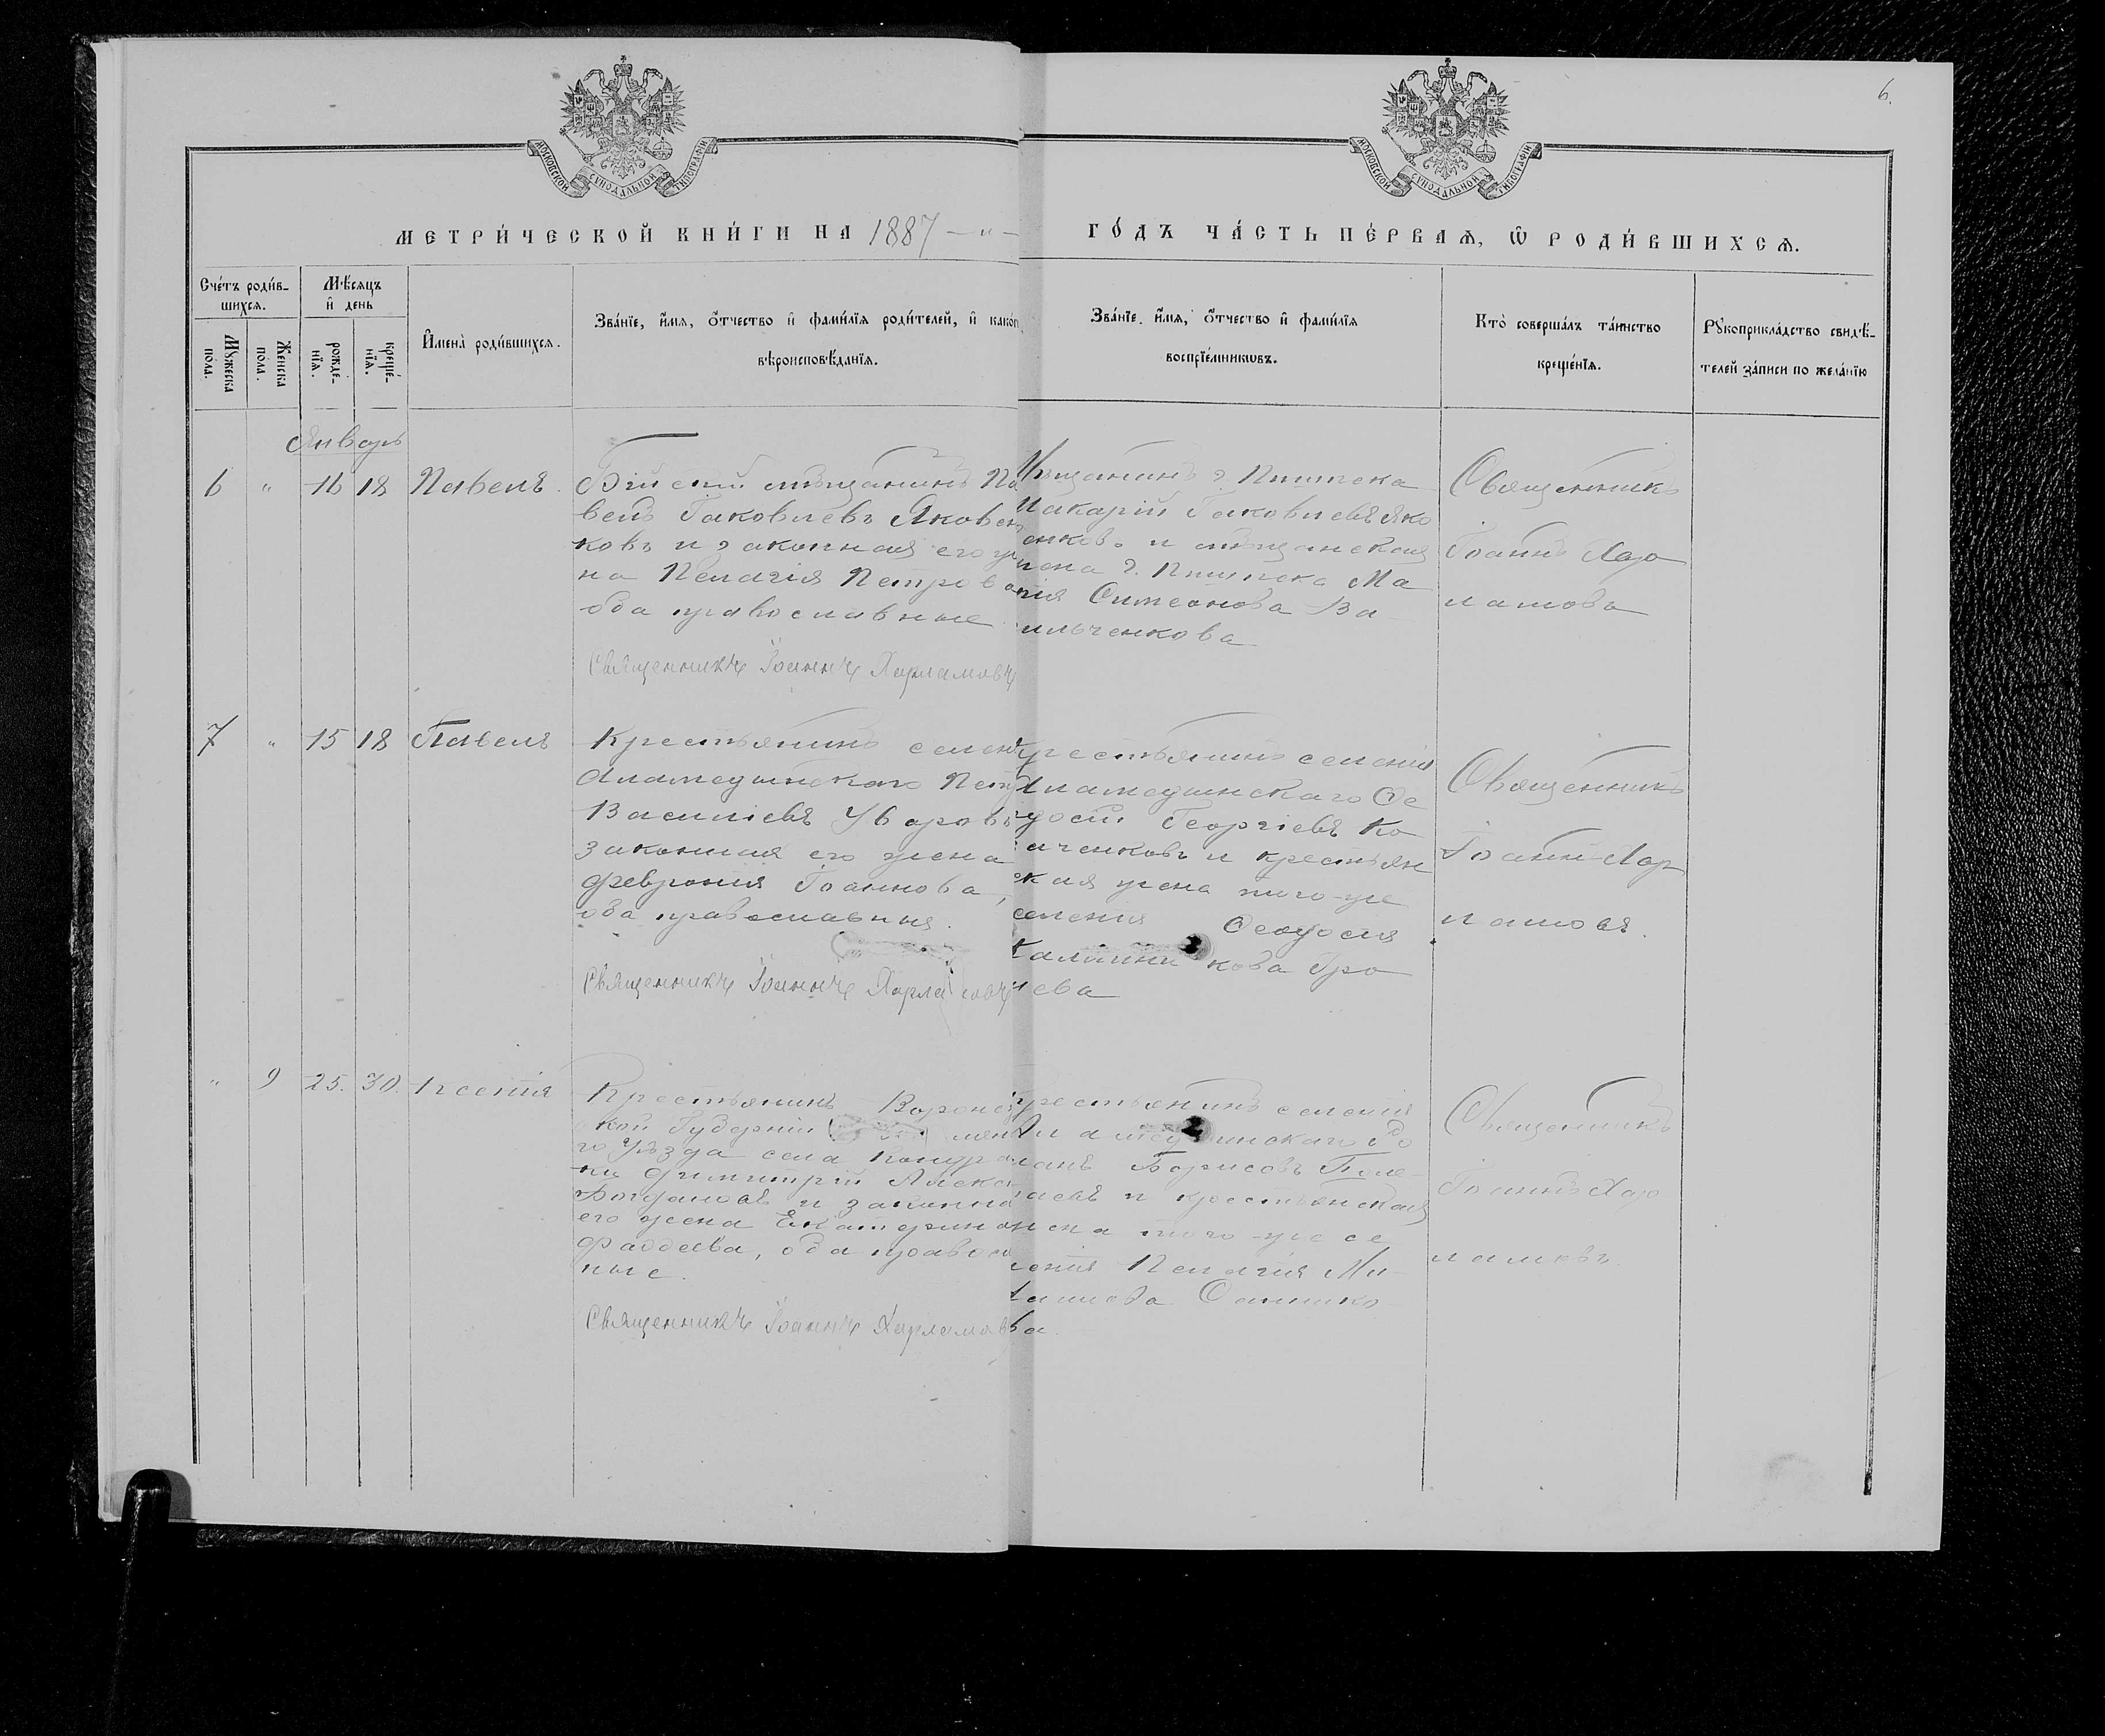 6.
МОСКОВСКОЙ СѴНОДАЛЬНОЙ ТИПОГРАФІИ
МОСКОВСКОЙ СѴНОДАЛЬНОЙ ТИПОГРАФІИ
МЕТРИ́ЧЕСКОЙ КНИ́ГИ НА 1887 — „ —
ГО́ДЪ ЧА́СТЬ ПЕ́РВАѦ, Ѽ РОДИ́ВШИХСѦ.
Сче́тъ роди́в-
шихсѧ.
Мꙋжеска
по́ла.
Женска
по́ла.
Мѣ́сѧцъ
и҆ день
рожде́-
нїѧ.
креще́-
нїѧ.
И҆мена̀ роди́вшихсѧ.
Зва́нїе, и҆́мѧ, ѻ҆́тчество и҆ фами́лїѧ роди́телей, и҆ како́
вѣроисповѣ́данїѧ.
Зва́нїе, и҆́мѧ, ѻ҆́тчество и҆ фами́лїѧ
воспрїе́мникѡвъ.
Кто̀ соверша́лъ та́инство
креще́нїѧ.
Рꙋкоприкла́дство свидѣ́-
телей за́писи по жела́нїю
Январь
6 „ 16 18 Павелъ.
Бійскій мѣщанинъ Па
велъ Іаковлевъ Яковен
ковъ и законная его же
на Пелагія Петрова
оба православные
Священникъ Іоаннъ Харламовъ
Мѣщанинъ г. Пишпека
Макарій Іаковлевъ Яко
енковъ и мѣщанская
жена г. Пишпека Ма
рія Симеонова Ва
ильченкова
Священникъ
Іоаннъ Хар
ламовъ
7 „ 15 18 Павелъ
Крестьянинъ селен
Аламединскаго Петр
Василіевъ Уваровъ
законная его жена
Феврония Іоаннова,
оба православныя.
Священникъ Іоаннъ Харла мовъ
Крестьянинъ селенія
Аламединскаго Ѳе
досій Георгіевъ Ко
аченковъ и крестьян
ская жена того-же
селенія Ѳеодосія
Калинникова Гро
ева
Священникъ
Іоаннъ Хар
ламовъ.
„ 9 25. 30. Ксенія
Крестьянинъ Воронеж
кой Губерніи
го Уѣзда села
ки Димитрій Алекс
Богдановъ и законна
его жена Екатерина
Фаддеева, оба правосл
ные.
Священникъ Іоаннъ Харламовъ
Крестьянинъ селенія
Аламединскаго Ро
манъ Борисовъ Поле-
аевъ и крестьянская
жена того-же се
ленія Пелагія Ми-
хаилова Саннико
ва.
Священникъ
Іоаннъ Хар
ламовъ.